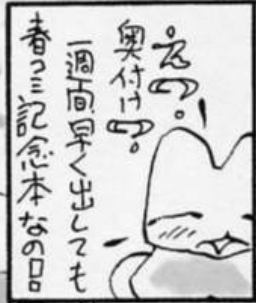 えっ?
奥付け?
一週間早く出しても
春コミ記念本なの!!